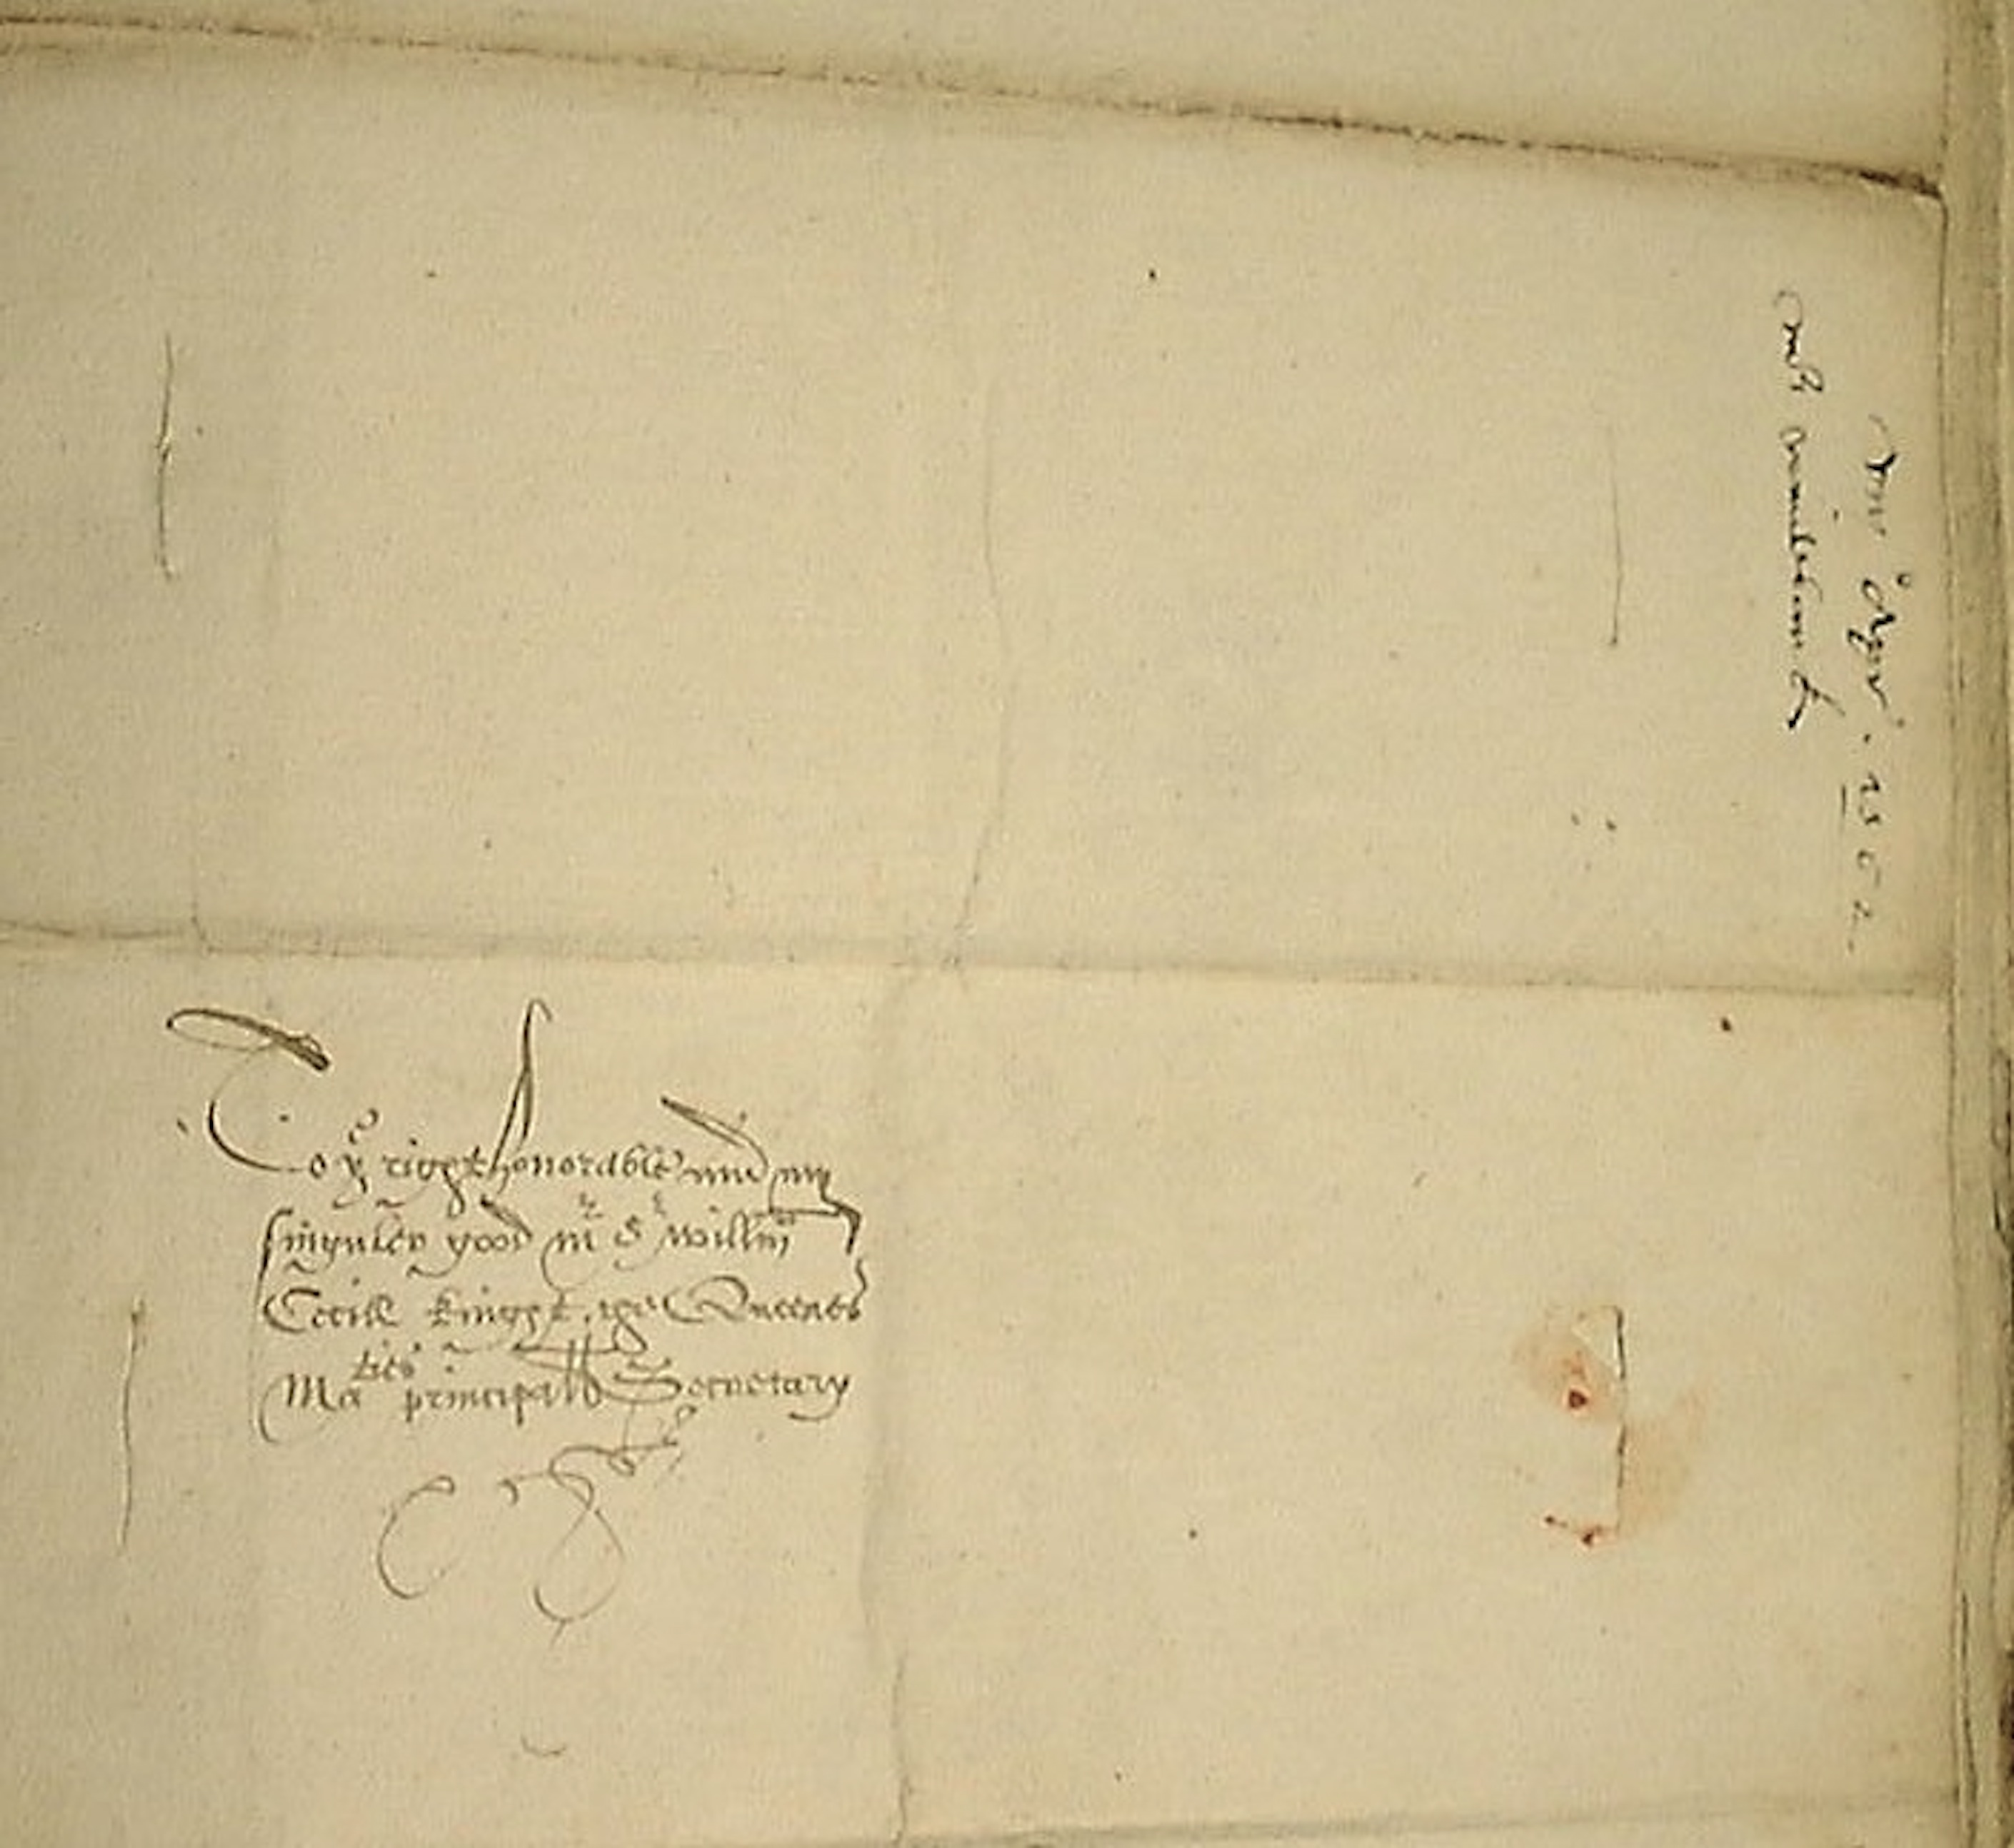 To yͤ right honorable and my
singuler good mʳ Sʳ Willm̃
Cecill knight, the Queenes
Maᵗⁱᵉˢ principall Secretary
Apr . 1562
mʳ